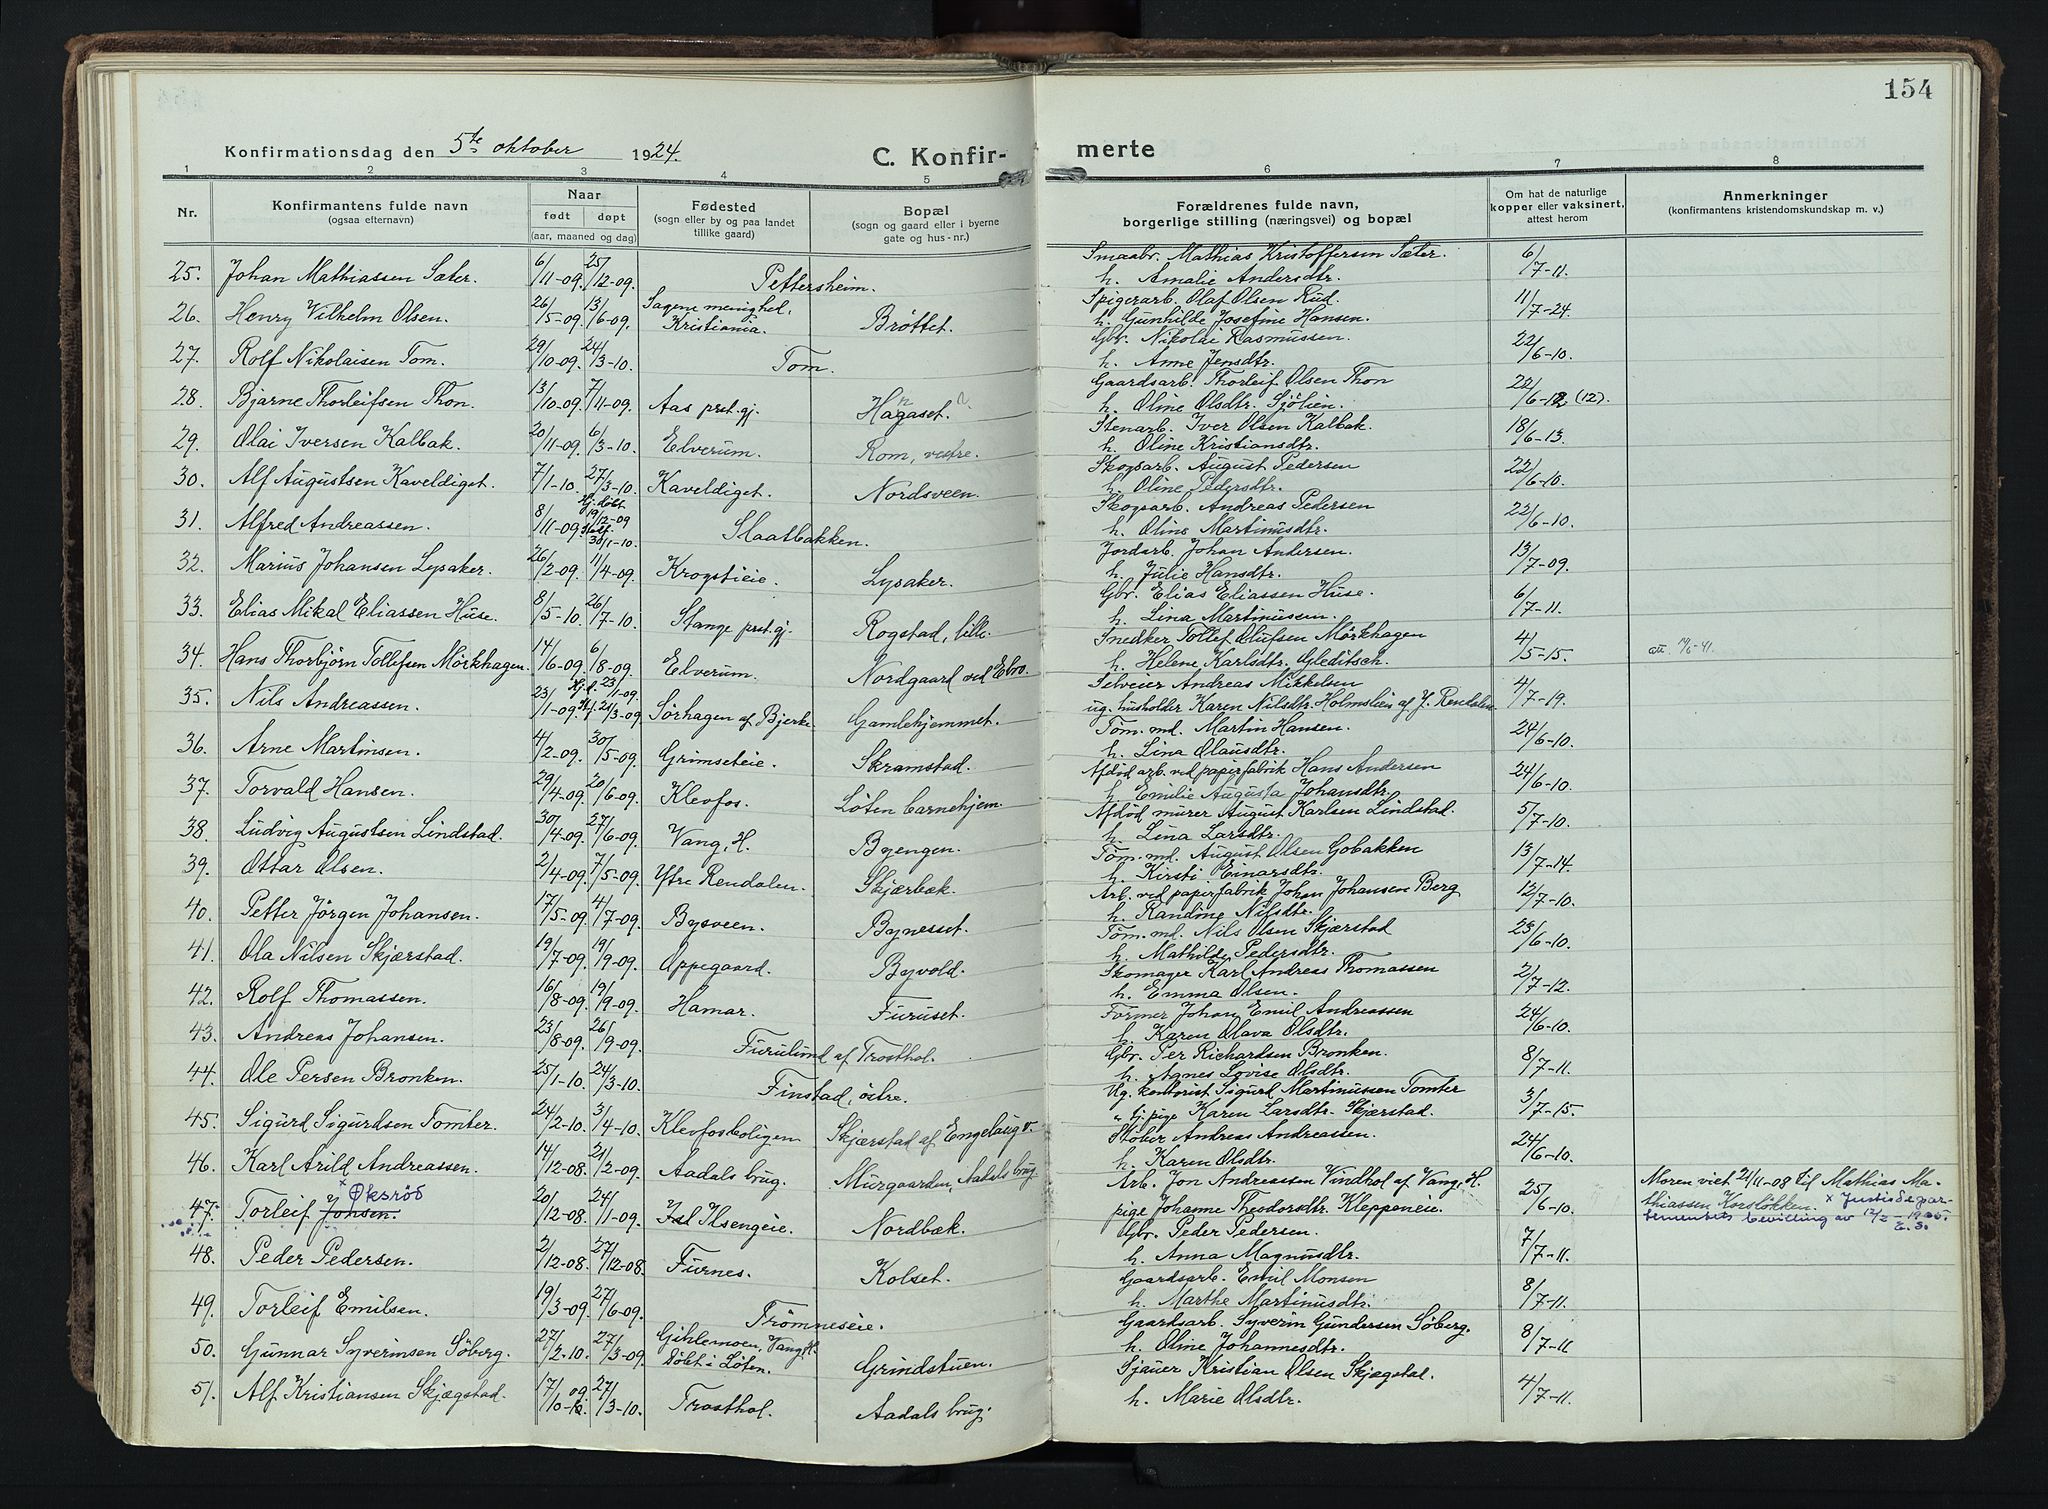 154
Konfirmationsdag den 5te oktober 1924.
C. Konfir-
merte
1 2 3 4 5 6 7 8
Nr.
Konfirmantens fulde navn
(ogsaa efternavn)
Naar
født døpt
(aar, maaned og dag)
Fødested
(sogn eller by og paa landet
tillike gaard)
Bopæl
(sogn og gaard eller i byerne
gate og hus-nr.)
Forældrenes fulde navn,
borgerlige stilling (næringsvei) og bopæl
Om hat de naturlige
kopper eller vaksinert,
attest herom
Anmerkninger
(konfirmantens kristendomskundskap m. v.)
25. Johan Mathiassen Sæter. 6/11-09. 25/12-09. Pettersheim. Smaabr. Mathias Kristoffersen Sæter. 6/7-11.
h. Amalie Andersdtr.
26. Henry Vilhelm Olsen. 26/5-09. 13/6-09. Sagene menighet, Kristiania. Brøttet. Spigerarb. Olaf Olsen Rud. 11/7-24.
h. Gunhilde Josefine Hansen.
27. Rolf Nikolaisen Tom. 29/10-09. 24/3-10. Tom. Gbr. Nikolai Rasmussen. 22/6-10.
h. Anne Jensdtr.
28. Bjarne Thorleifsen Thon. 13/10-09. 7/11-09. Aas prst.gj. Hagaset. Gaardsarb. Thorleif Olsen Thon 22/6-12 (12).
h. Oline Olsdtr. Sjölien.
29. Olai Iversen Kalbak. 20/11-09. 6/3-10. Elverum. Rom, vestre. Stenarb. Iver Olsen Kalbak. 18/6-13.
h. Oline Kristiansdtr.
30. Alf Augustsen Kaveldiget. 7/1-10. 27/3-10. Kaveldiget. Nordsveen. Skogsarb. August Pedersen 22/6-10.
h. Oline Pedersdtr.
31. Alfred Andreassen. 8/11-09 Hj.døbt 19/12-09 Stadf. 30/1-10. Slaatbakken. Skogsarb. Andreas Pedersen 22/6-10.
h. Oline Martinusdtr.
32. Marius Johansen Lysaker. 26/2-09. 11/4-09. Krogstieie. Lysaker. Jordarb. Johan Andersen. 13/7-09.
h. Julie Hansdtr.
33. Elias Mikal Eliassen Huse. 8/5-10. 26/7-10. Stange prst.gj. Rogstad, lille. Gbr. Elias Eliassen Huse. 6/7-11.
h. Lina Martinussen.
34. Hans Thorbjörn Tollefsen Mörkhagen. 14/6-09. 6/8-09. Elverum. Nordgaard ved Ebro. Snedker Tollef Olufsen Mörkhagen 4/5-15. att. 14/6-41.
h. Helene Karlsdtr. Gleditsch.
35. Nils Andreassen. 23/1-09 Hj.d. 23/1-09. St.f. 21/3-09. Sørhagen af Bjerke. Gamlehjemmet. Selveier Andreas Mikkelsen 4/7-19.
ug. husholder Karen Nilsdtr. Holmslien af Y. Rendalen
36. Arne Martinsen. 4/2-09. 30/5-09. Grimseteie. Skramstad. Töm. md. Martin Hansen. 24/6-10.
h. Lina Olausdtr.
37. Torvald Hansen. 29/4-09. 20/6-09. Klevfos. Löten barnehjem. Afdöd arb. ved papirfabrik Hans Andersen 24/6-10.
h. Emilie Augusta Johansdtr.
38. Ludvig Augustsen Lindstad. 30/4-09. 27/6-09. Vang, H. Byengen. Afdöd murer August Karlsen Lindstad. 5/7-10.
h. Lina Larsdtr.
39. Ottar Olsen. 2/4-09. 7/5-09. Ytre Rendalen. Skjærbæk. Töm. md. August Olsen Gobakken 13/7-14.
h. Kirsti Einarsdtr.
40. Petter Jörgen Johansen. 17/5-09 4/7-09. Bysveen. Bynesset. Arb. ved papirfabrik Johan Johansen Berg 12/7-10.
h. Randine Nilsdtr.
41. Ola Nilsen Skjærstad. 19/7-09. 19/9-09. Oppegaard. Byvold. Töm. md. Nils Olsen Skjærstad 23/6-10.
h. Mathilde Pedersdtr.
42. Rolf Thomassen. 16/8-09. 19/9-09. Hamar. Furuset. Skomager Karl Andreas Thomassen 2/7-12.
h. Emma Olsen.
43. Andreas Johansen. 23/8-09. 26/9-09. Furulund af Trosthol. Former Johan Emil Andreassen 24/6-10.
h. Karen Olava Olsdtr.
44. Ole Persen Bronken. 25/1-10. 24/3-10. Finstad, östre. Gbr. Per Richardsen Bronken. 8/7-11.
h. Agnes Lovise Olsdtr.
45. Sigurd Sigurdsen Tomter. 24/2-10. 3/4-10. Klevfosboligen Skjærstad af Engelaug v. Ug. kontorist Sigurd Martinussen Tomter 3/7-15.
" tj.pige Karen Larsdtr. Skjærstad.
46. Karl Arild Andreassen. 14/12-08. 21/2-09. Aadals brug. Murgaarden, Aadals brug. Stöber Andreas Andreassen. 24/6-10.
h. Karen Olsdtr.
47. Torleif Jonsen. x Öksröd 20/12-08. 24/1-09. Ilsengeie. Nordbæk. Arb. Jon Andreassen Vindhol af Vang, H. 25/6-10. Moren viet 21/11-08 til Mathias Ma-
pige Johanne Theodorsdtr. Kleppeneie. thiassen Korslökken. x Justisdepar-
tementets bevilling av 12/2-1935. E.S.
48. Peder Pedersen. 2/12-08. 27/12-08. Furnes. Kolset. Gbr. Peder Pedersen. 7/7-11.
h. Anna Magnusdtr.
49. Torleif Emilsen. 19/3-09. 27/6-09. Trömneseie. Gaardsarb. Emil Monsen 8/7-11.
h. Marthe Martinusdtr.
50. Gunnar Syverinsen Söberg. 27/2-10. 27/3-09. Gihlemoen, Vang, H. Döbt i Löten. Grindstuen. Gaardsarb. Syverin Gundersen Söberg. 8/7-11
h. Oline Johannesdtr.
51. Alf Kristiansen Skjægstad. 17/10-09 27/3-10. Trosthol. Aadals brug. Sjauer Kristian Olsen Skjægstad. 4/7-11.
h. Marie Olsdtr.